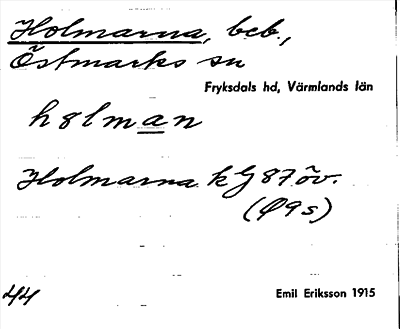 Holmarna, beb.,
Östmarks sn
Fryksdals hd, Värmlands län
hɵlman
Holmarna k G 87 öv.
(Q9s)
44
Emil Eriksson 1915